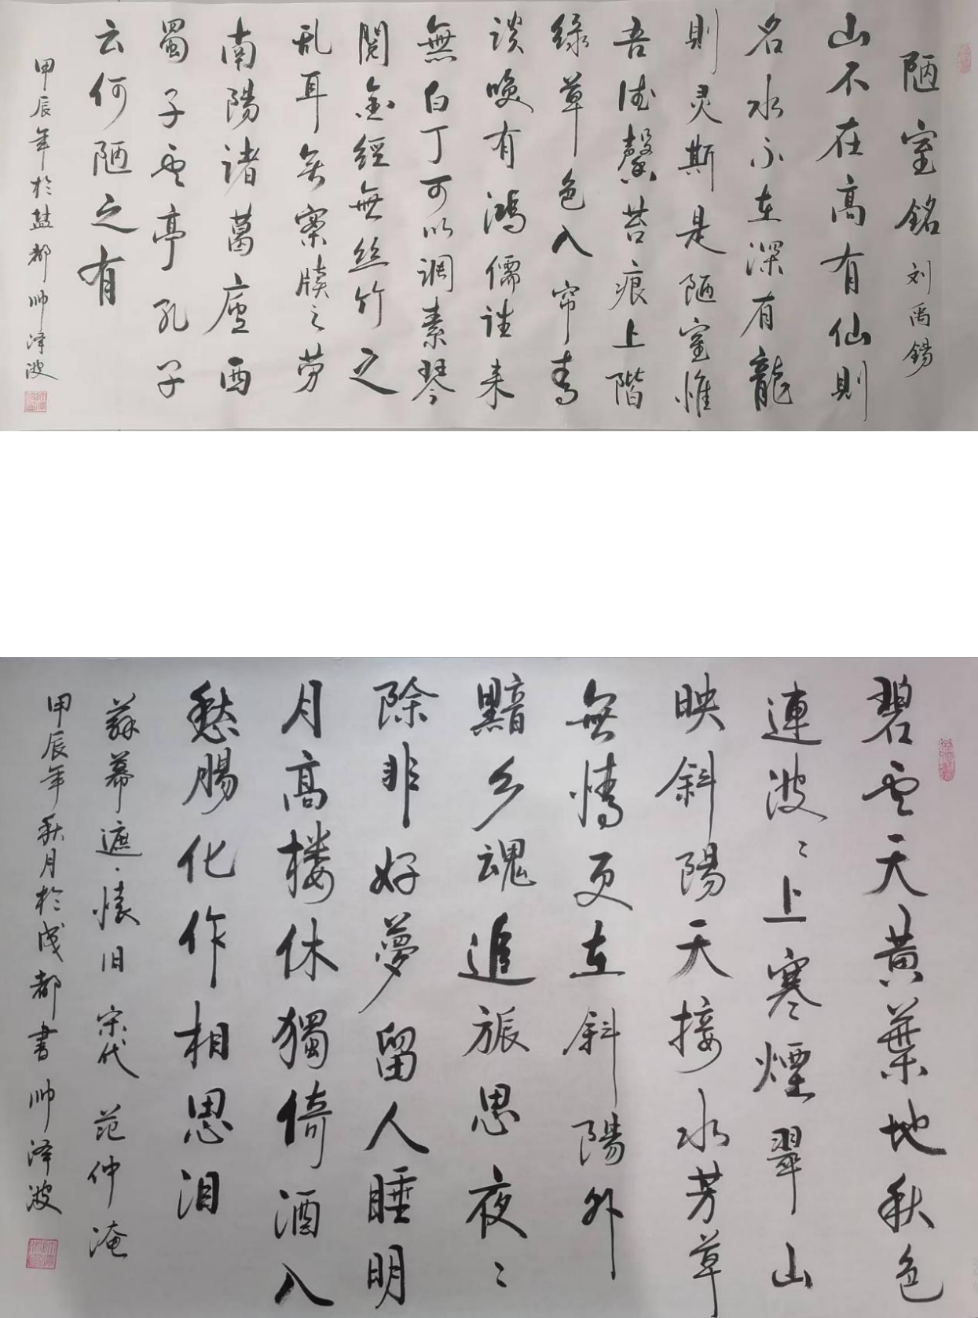 陋室銘 刘禹锡
山不在高有仙則
名水不在深有龍
則灵斯是陋室惟
吾德馨苔痕上階
緑草色入帘青
談咲有鴻儒往来
無白丁可以调素琴
閲金經無丝竹之
乱耳無案牍之劳
南陽诸葛廬西
蜀子雲亭孔子
云何陋之有
甲辰年於盐都帅泽波
碧雲天黄葉地秋色
連波波上寒煙翠山
映斜陽天接水芳草
無情更在斜陽外
黯乡魂追旅思夜夜
除非好夢留人睡明
月高楼休獨倚酒入
愁腸化作相思泪
蘇幕遮·懐旧 宋代 范仲淹
甲辰年秋月於成都書帅泽波